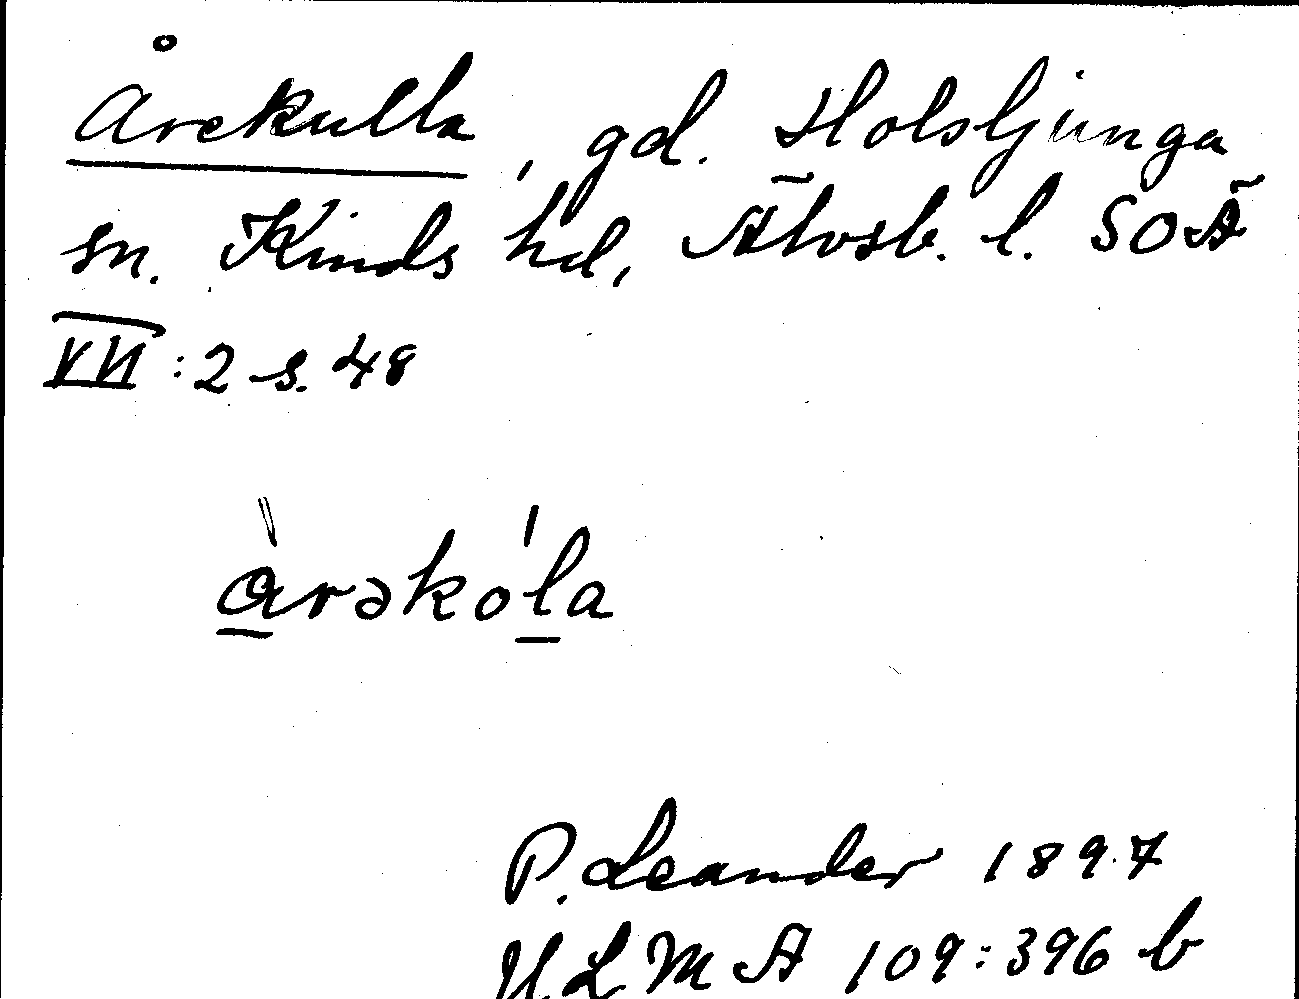 Årekulla, gd. Holsljunga
sn. Kinds hd, Älvsb. l. SOÄ
VII:2 s. 48
àrəkóla
P. Leander 1897
ULMA 109:396 b